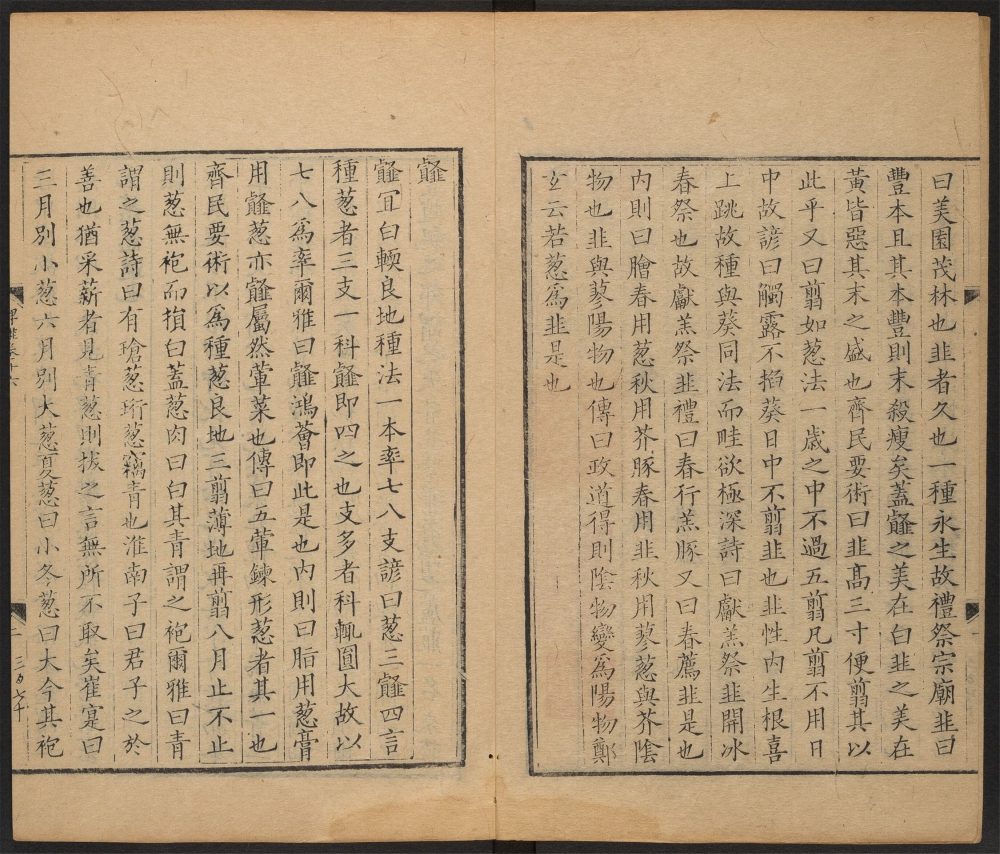 曰美園茂林也韭者久也一種永生故禮祭宗廟韭曰
豐本且其本豐則末殺瘦矣蓋䪥之美在白韭之美在
黃皆惡其末之盛也齊民要術曰韭髙三寸便翦其以
此乎又曰翦如葱法一歲之中不過五翦凡翦不用日
中故諺曰觸露不掐葵日中不翦韭也韭性内生根喜
上跳故種與葵同法而畦欲極深詩曰獻羔祭韭開冰
春祭也故獻羔祭韭禮曰春行羔豚又曰春薦韭是也
内則曰膾春用葱秋用芥豚春用韭秋用蓼葱與芥陰
物也韭與蓼陽物也傳曰政道得則陰物變爲陽物鄭
玄云若葱爲韭是也
䪥
䪥宜白輭良地種法一本率七八支諺曰葱三䪥四言
種葱者三支一科䪥即四之也支多者科輒圓大故以
七八爲率爾雅曰䪥鴻薈即此是也内則曰脂用葱膏
用䪥葱亦䪥屬然葷菜也傳曰五葷鍊形葱者其一也
齊民要術以爲種葱良地三翦薄地再翦八月止不止
則葱無袍而損白蓋葱肉曰白其青謂之袍爾雅曰青
謂之葱詩曰有瑲葱珩葱竊青也淮南子曰君子之於
善也猶采薪者見青葱則拔之言無所不取矣崔寔曰
三月別小葱六月別大葱夏葱曰小冬葱曰大今其袍
埤雅卷十六